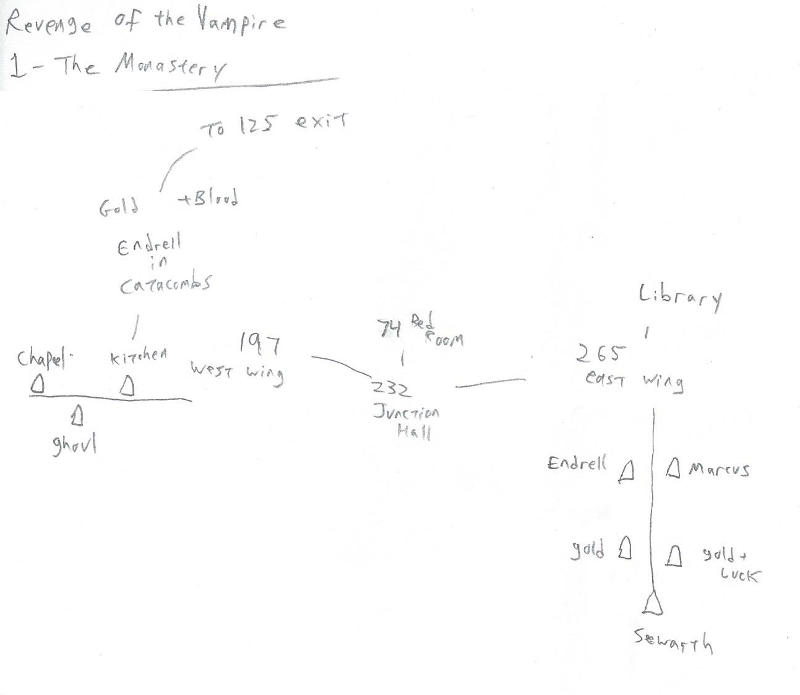 Revenge of the Vampire
1 - The Monastery
To 125 exit
Gold +Blood
Endrell
in
Catacombs
Library
74 Bed
Room
197
West Wing
265
east wing
Chapel
Kitchen
232
Junction
Hall
ghoul
Endrell
Marcus
gold
gold +
Luck
Sewarth